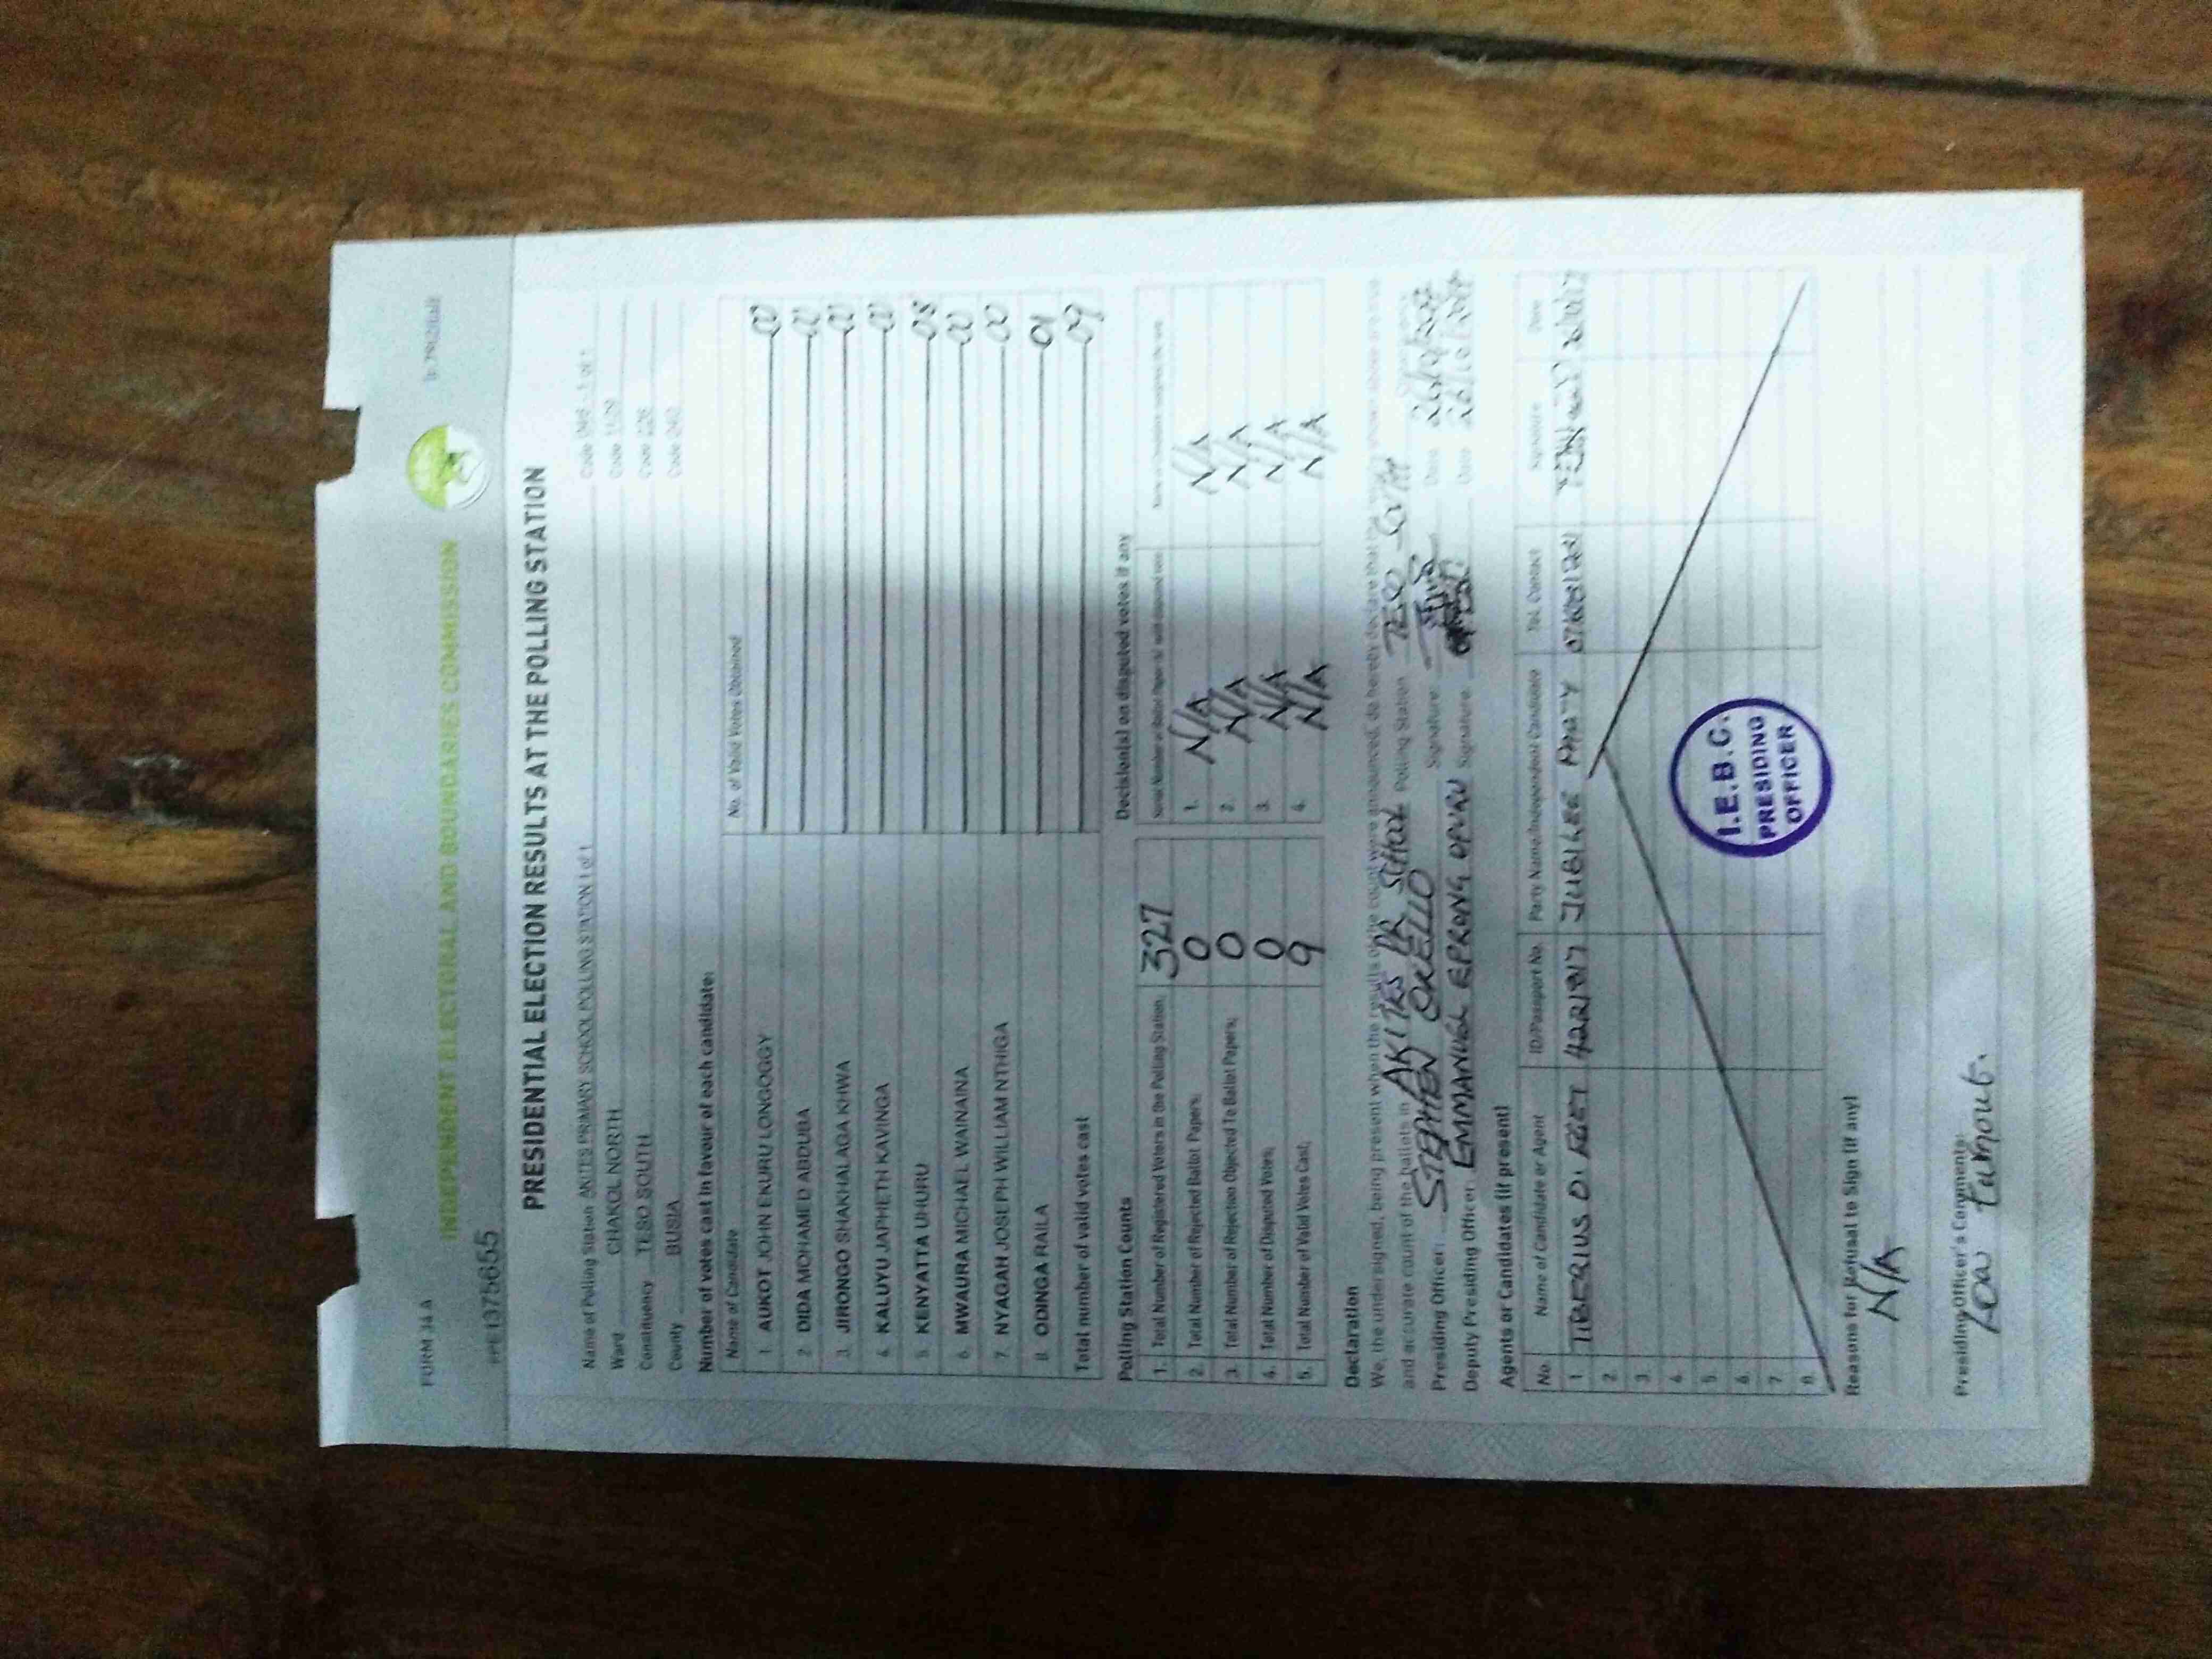 FORM 34A
INDEPENDENT ELECTORAL AND BOUNDARIES COMMISSION
PRESIDENTIAL ELECTION RESULTS AT THE POLLING STATION
Name of Polling Station AKITES PRIMARY SCHOOL POLLING STATION 1 of 1
Ward CHAKOL NORTH
Constituency TESO SOUTH
County BUSIA
Number of votes cast in favour of each candidate:
Name of Candidate No. of Valid Votes Obtained
1. AUKOT JOHN EKURU LONGOGGY 00
2. DIDA MOHAMED ABDUBA 00
3. JIRONGO SHAKHALAGA KHWA 00
4. KALUYU JAPHETH KAVINGA 00
5. KENYATTA UHURU 08
6. MWAURA MICHAEL WAINAINA 00
7. NYAGAH JOSEPH WILLIAM NTHIGA 00
8. ODINGA RAILA 01
Total number of valid votes cast 09
Polling Station Counts
1. Total Number of Registered Voters in the Polling Station; 327
2. Total Number of Rejected Ballot Papers; 0
3. Total Number of Rejection Objected To Ballot Papers; 0
4. Total Number of Disputed Votes; 0
5. Total Number of Valid Votes Cast; 9
Decision(s) on disputed votes if any
1. N/A N/A
2. N/A N/A
3. N/A N/A
4. N/A N/A
Declaration
We, the undersigned, being present when the results of the count were announced, do hereby declare that the
and accurate count of the ballots in AKITES PR SCHOOL Polling Station TESO SOUTH
Presiding Officer: STEPHEN OKELLO Signature Date
Deputy Presiding Officer: EMMANUEL Signature Date
Agents or Candidates (if present)
No. Name of Candidate or Agent ID/Passport No. Party Name/Independent Candidate Tel. Contact Signature Date
1. TIBERIUS JUBILEE PARTY
2.
3.
4.
5.
6.
7.
8.
I.E.B.C.
PRESIDING
OFFICER
Reasons for Refusal to Sign (if any)
N/A
Presiding Officer's Comments:
Low turnout.